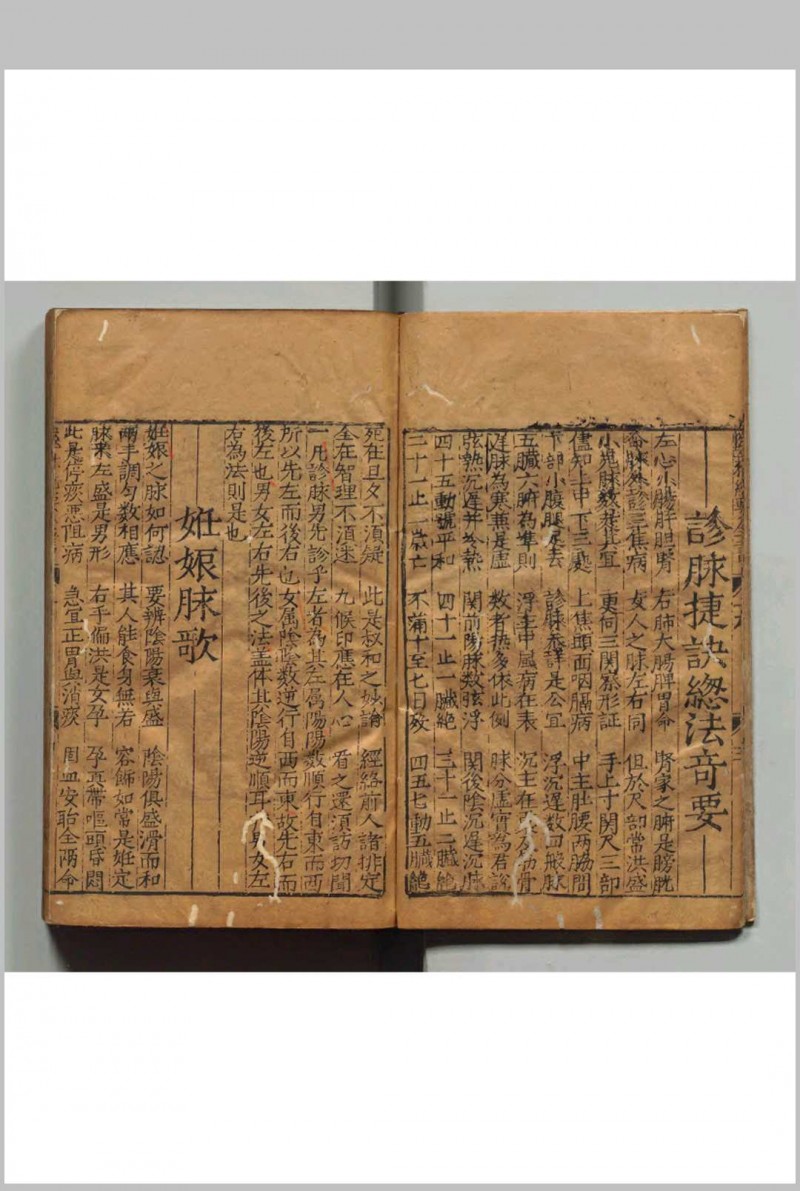 診脉捷訣總法奇要
左心小腸肝胆腎 右肺大腸脾胃命 腎家之腑是膀胱
脉 三焦病 女人之脉左右同 但於尺部常洪盛
小児脉数 宜 更向三関察形証 手上寸関尺三部
須知上中下三處 上焦頭面咽膈病 中主肚腰两脇間
下部小腹腿 去 診脉 詳是公宜 浮沉遲数四般脉
五臟六腑為凖則 浮主中風病在表 沉主在 骨
遲脉為寒兼是虚 数者热多依此例 脉分虚實為君說
弦熱沉遲并為熱 関前陽脉数弦浮 関後陰沉遲沉脉
四十五動號平和 四十一止一臟絶 三十一止二臟絶
二十一止一歲亡 不滿十至七日歿 四五七動五臟絶
死在旦夕不湏疑 此是叔和之妙論 經絡前人諸排定
全在智理不湏速 九候印應在人心 看之還湏訪切聞
一凡診脉男先診乎左者為其左属陽陽数順行自東而西
所以先左而後右也女属陰陰数逆行自西而東故先右而
後左也男女左右先後之法盖体其陰陽逆順耳 男女左
右為法則是也
姙娠脉歌
姙娠之脉如何認 要辨陰陽衰與盛 陰陽俱盛滑而和
兩手調匀数相應 其人能食身無若 容飾如常是姙定
脉來左盛是男形 右手偏洪是女孕 孕真帶嘔頭昏悶
此是停痰悪阻病 急宜正胃與消痰 固血安胎全两命